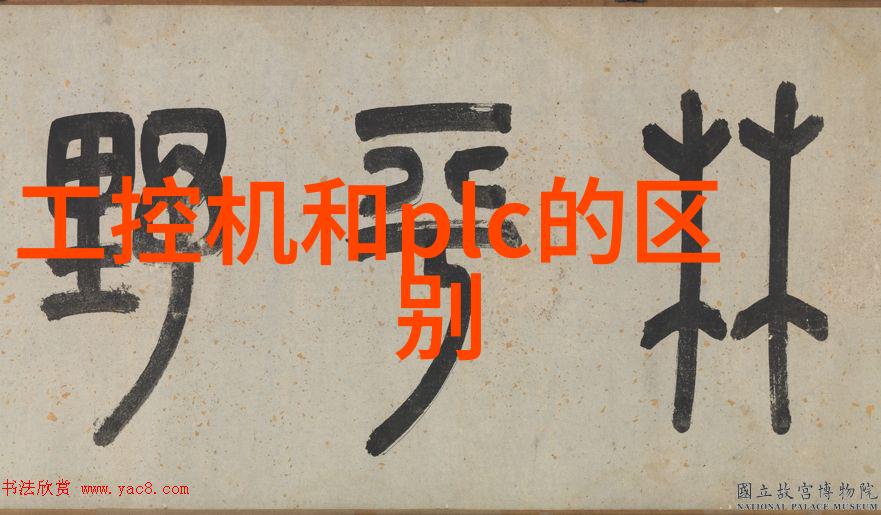 林平野
工控机和plc的区
别
书法欣赏 www.yac8.com
國立故宮博物院
NATIONAL PALACE MUSEUM